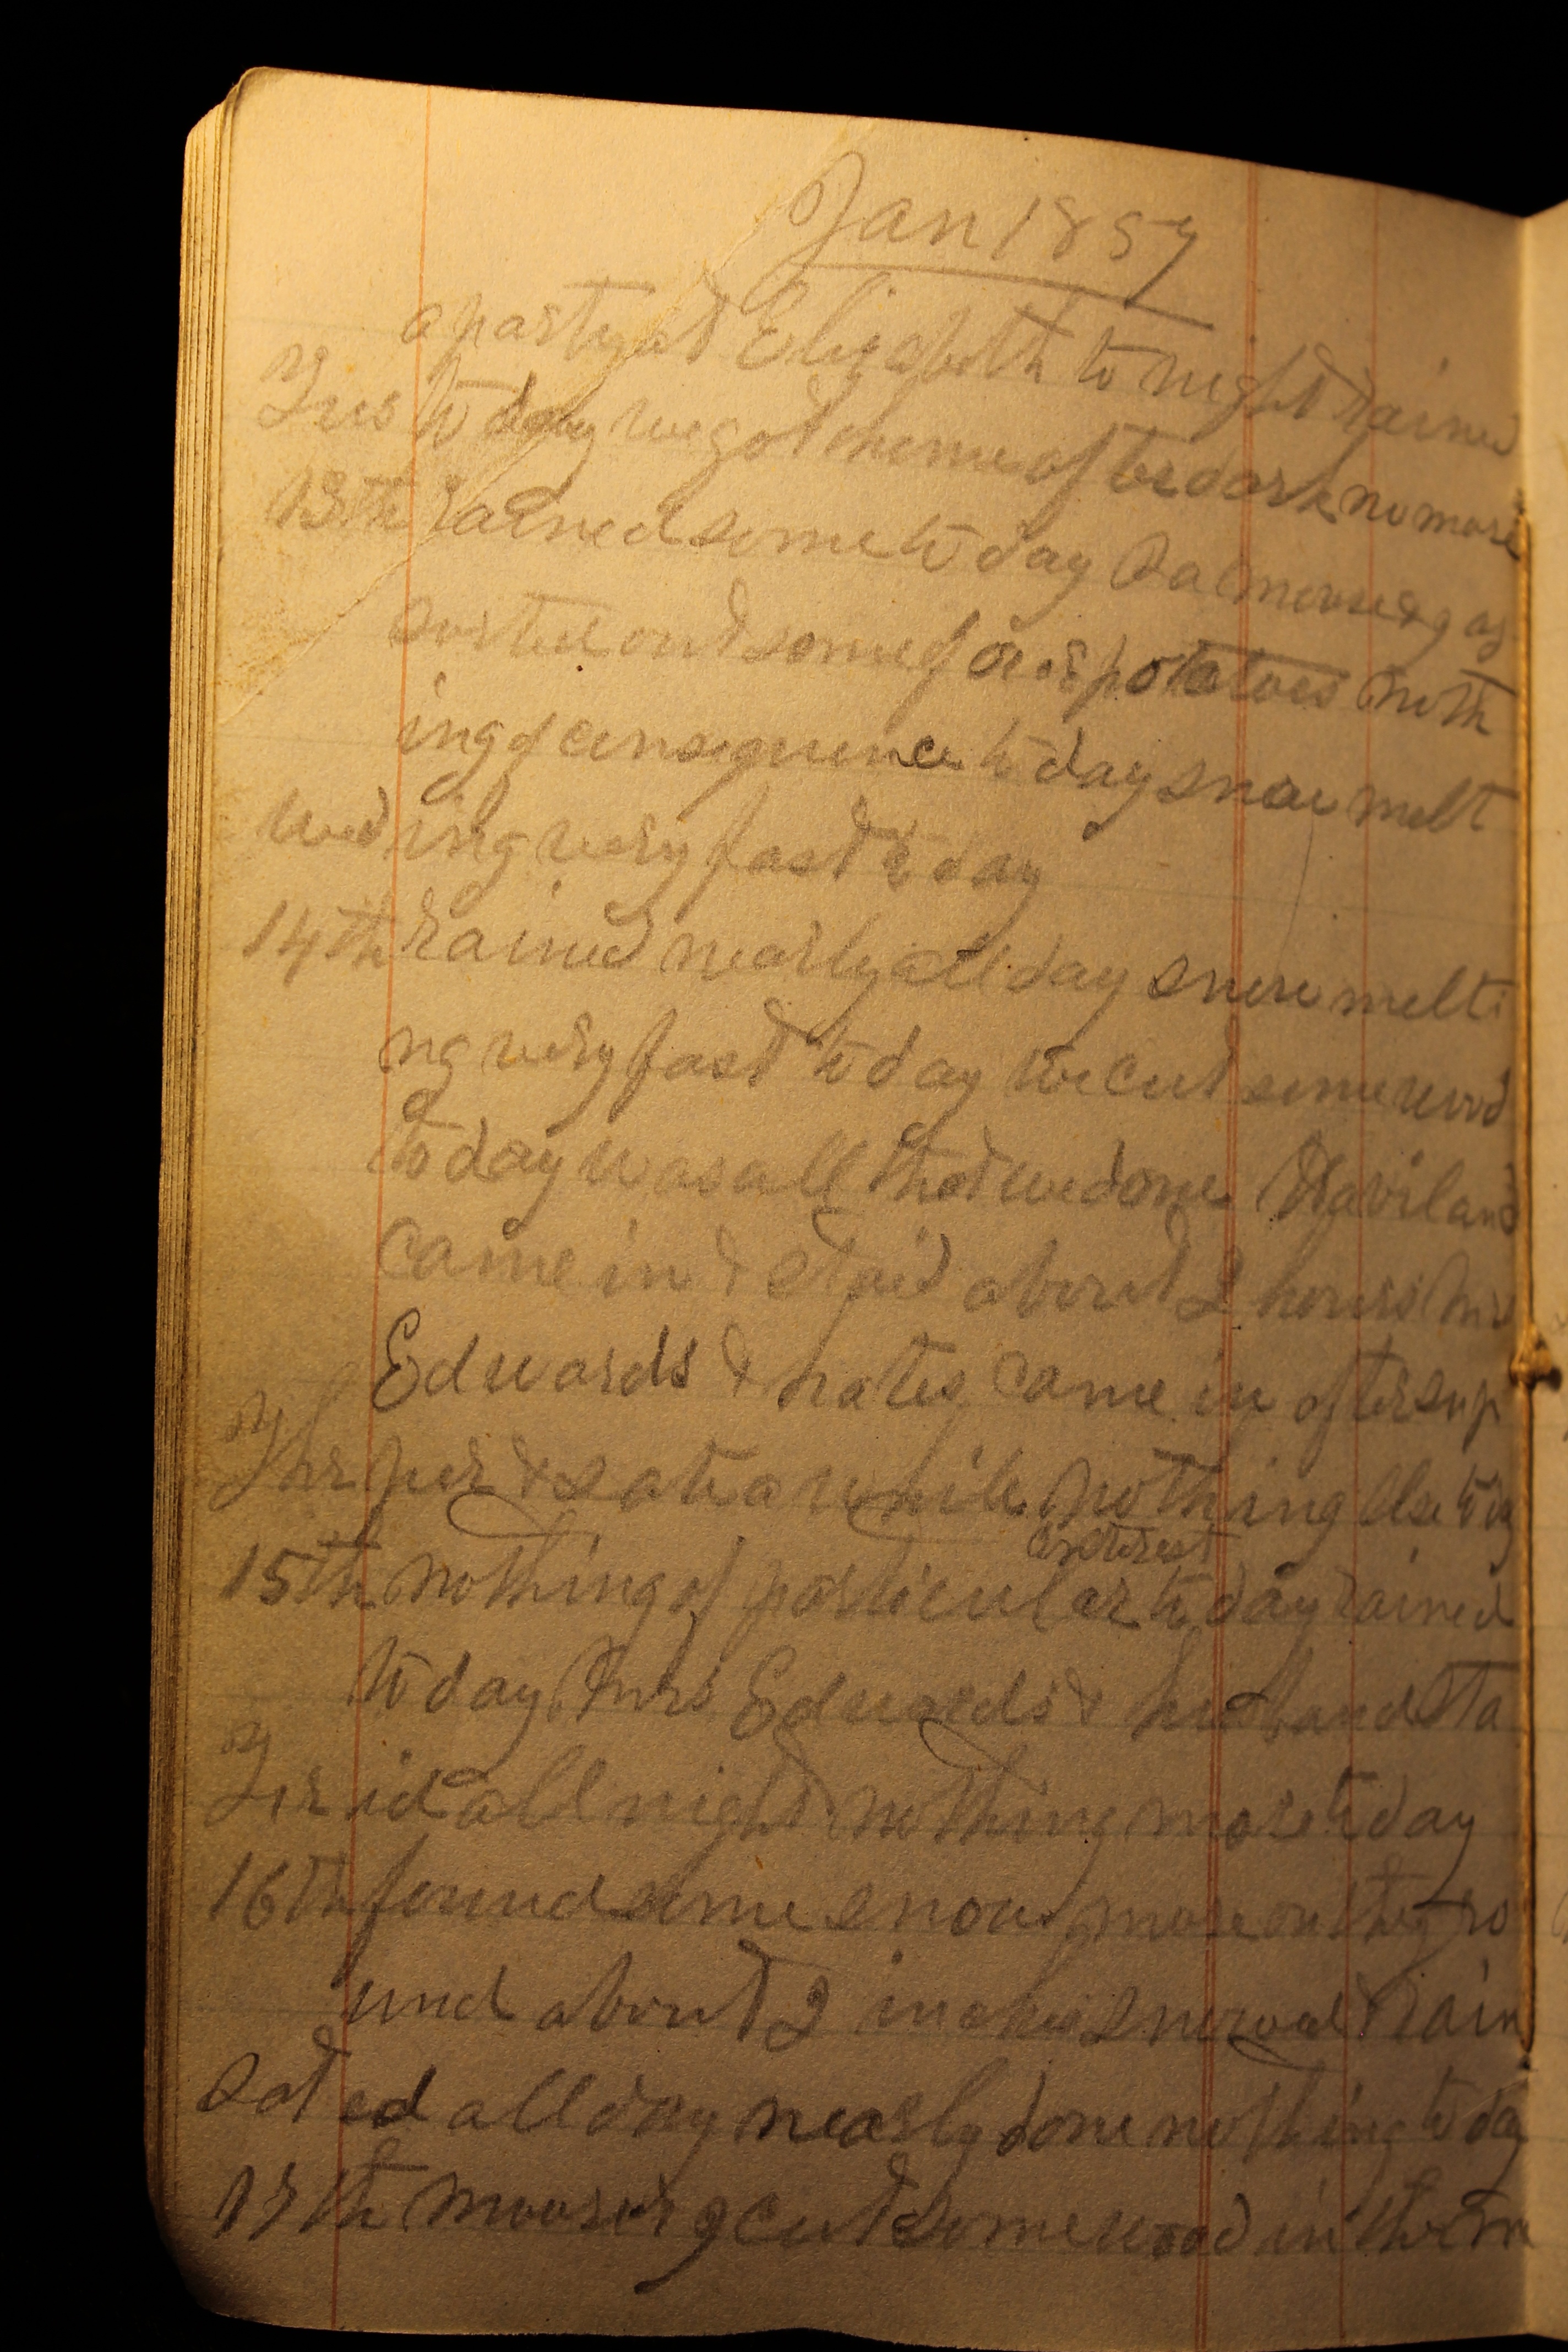 Jan 1857
a party at Elizabeth to night rained
Tus to day we got home after dark no more
13th rained some to day Sal moouse & g as
sorted out some of our potatoes noth
ing of consequence to day snow melt
Wed ing very fast to day
14th rained nearly all day snow melti
ng very fast to day we cut some wood
to day was all that we done Haviland
came in & staid about 2 hours Mrs
Edwards & hates came in after sup
Thr per & sate a while nothing else to day
interest
15th nothing of particular to day rained
to day Mrs Edwards & husband sta
Fir id all night nothing more to day
16th found some snow more on the gro
und about 2 inches snowed & rain
Sat ed all day nearly done nothing to day
17th & g cut some wood in the